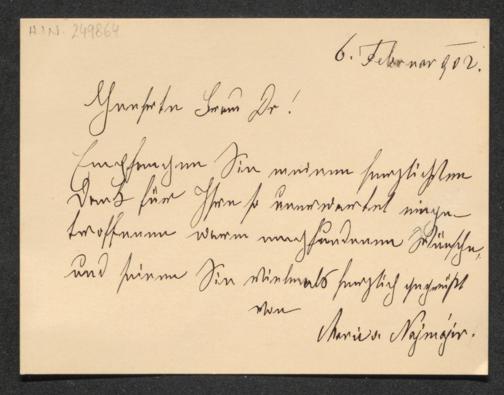 H.I.N. 249864
6. Februar 902.
Geehrte Frau Dr!
Empfangen Sie meinen herzlichsten
Dank für Ihre so unerwartet einge-
troffenen warm empfundenen Wünsche,
und seien Sie vielmals herzlich gegrüßt
von
Marie v. Najmájer.